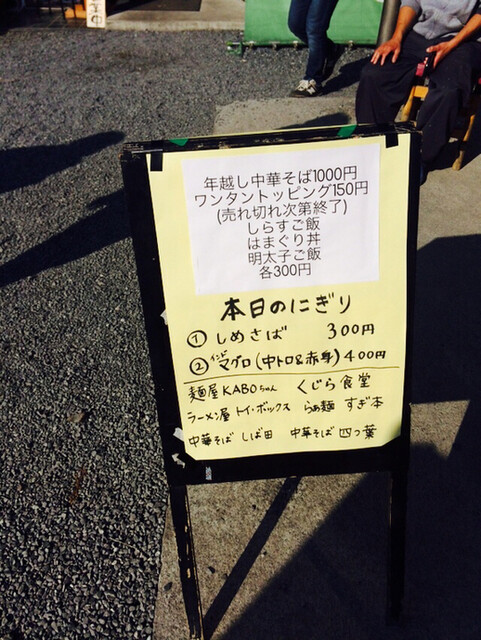 年越し中華そば1000円
ワンタントッピング150円
(売れ切れ次第終了)
しらすご飯
はまぐり丼
明太子ご飯
各300円
本日のにぎり
① しめさば 300円
② インドマグロ(中トロ&赤身) 400円
麺屋KABOちゃん くじら食堂
ラーメン屋 トイ・ボックス らぁ麺 すぎ本
中華そば しば田 中華そば 四つ葉